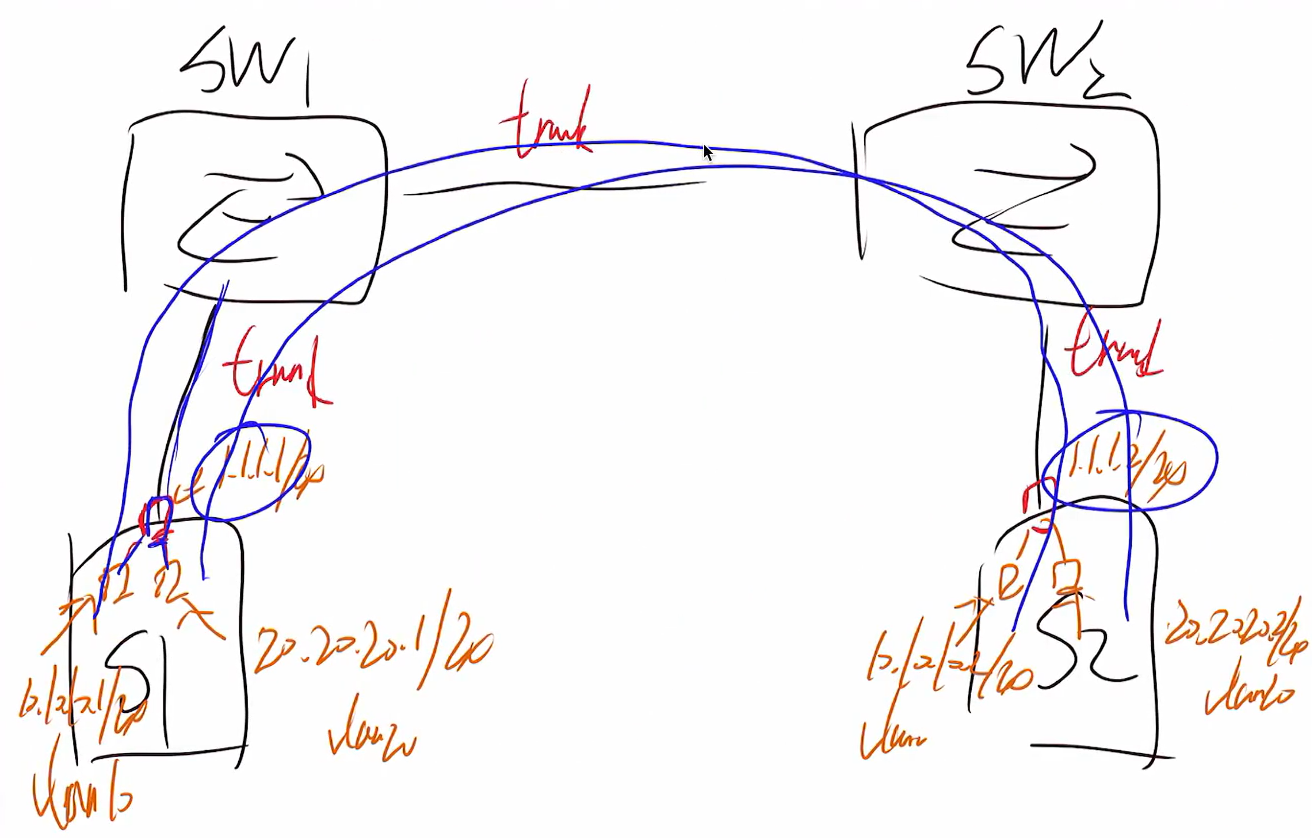 SW1
SW2
trunk
trunk
trunk
1.1.1.1/24
1.1.1.2/24
S1
20.20.20.1/24
vlan20
10.10.10.1/24
vlan10
S2
20.20.20.2/24
vlan20